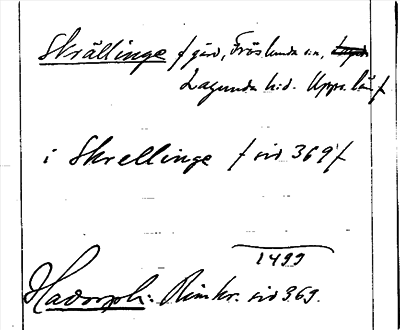 Skrällinge / gård, Fröslunda sn,
Lagunda hd. Upps. län /
i Skrellinge / sid 369 /
1499
Hadorph: Rimkr. sid 369.